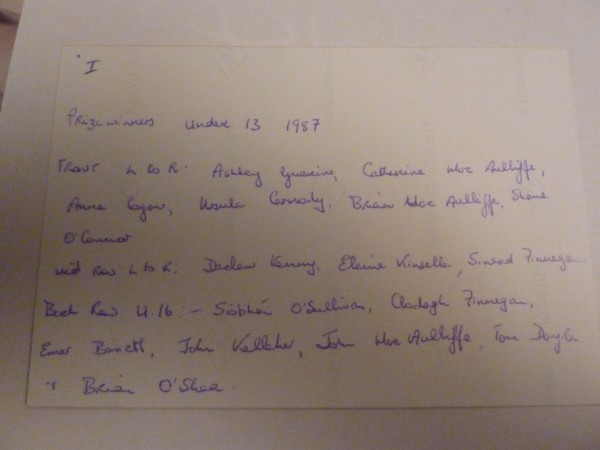 I
Prizewinners Under 13 1987
Front L to R: Ashley Catherine Mac Aulliffe,
Anne Cogan, Ursula Connody, Brian Mac Aulliffe, Shane
O'Connor
Mid Row L to R: Declan Kenny, Elaine Kinsella, Sinead Finnegan
Back Row U.16 :- Siobhán O'Sullivan, Clodagh Finnegan,
Emer Barrett, John Kelleher, John Mac Aulliffe, Tom Doyle
+ Brian O'Shea.